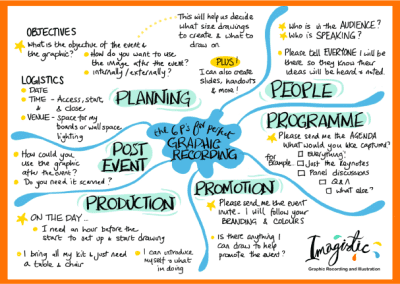 OBJECTIVES
What is the objective of the event &
the graphic?
How do you want to use
the image after the event?
internally/externally?
This will help us decide
what size drawings
to create & what to
draw on.
PLUS!
I can also create
slides, handouts
& more!
LOGISTICS
DATE
TIME - Access, start,
& close
VENUE - space for my
boards or wall space
lighting
PLANNING
the 6 P's for perfect
GRAPHIC
RECORDING
PEOPLE
Who is in the AUDIENCE?
Who is SPEAKING?
Please tell EVERYONE I will be
there so they know their
ideas will be heard & noted.
PROGRAMME
Please send me the AGENDA
What would you like captured?
for example..
Everything?
Just the keynotes
Panel discussions
Q&A
What else?
POST
EVENT
How could you
use the graphic
after the event?
Do you need it scanned?
PRODUCTION
ON THE DAY..
I need an hour before the
start to set up & start drawing
I bring all my kit & just need
a table & chair
I can introduce
myself & what
im doing
PROMOTION
Please send me the event
invite. I will follow your
BRANDING & COLOURS
Is there anything I
can draw to help
promote the event?
Imagistic
Graphic Recording and Illustration